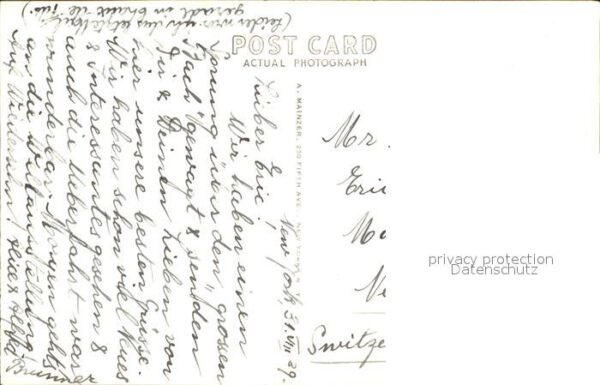 POST CARD
ACTUAL PHOTOGRAPH
A. MAINZER, 230 FIFTH AVE. NEW YORK
New York, 31. VIII 39.
Lieber Eric!
Wir haben einen
Sprung über den "grossen
Bach" gewagt & senden
Dir & Deinen Lieben von
hier unsere besten Grüsse.
Wir haben schon viel Neues
& Interessantes gesehen &
auch die Ueberfahrt war
wunderbar. Morgen gehts
an die Weltausstellung
Auf Wiedersehn!
Brunner
(Leider
gerade in
Mr.
Eric
Switze
privacy protection
Datenschutz